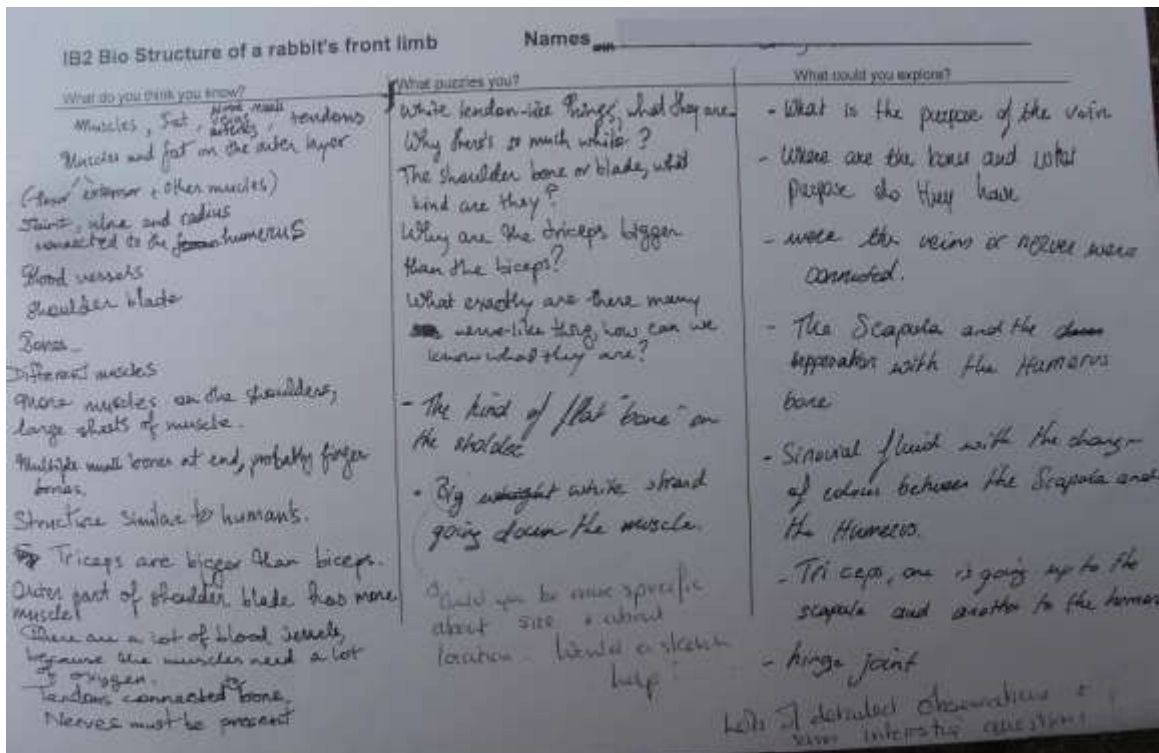 IB2 Bio Structure of a rabbit's front limb
Names
What do you think you know?
Muscles, Fat, blood vessels veins arteries, tendons
Muscles and fat on the outer layer
extensor + other muscles)
Joint, ulna and radius
connected to the humerus
Blood vessels
Shoulder blade
Bones
Different muscles
More muscles on the shoulders,
large sheets of muscle.
Multiple small bones at end, probably finger
bones.
Structure similar to humans.
Triceps are bigger than biceps.
Outer part of shoulder blade has more
muscle
There are a lot of blood vessels,
because the muscles need a lot
of oxygen.
Tendons connected to bone,
Nerves must be present
What puzzles you?
White tendon-like things, what they are.
Why there's so much white?
The shoulder bone or blade, what
kind are they?
Why are the triceps bigger
than the biceps?
What exactly are there many
nerve-like thing, how can we
know what they are?
- The kind of flat "bone" on
the sholder
- Big white strand
going down the muscle.
Could you be more specific
about size + about
location. Would a sketch
help?
What could you explore?
- What is the purpose of the vein
- Where are the bones and what
purpose do they have
- were the veins or nerves were
connected.
- The Scapula and the
with the Humerus
bone
- Sinovial fluid with the change
of colour between the Scapula and
the Humerus.
- Triceps, one is going up to the
scapula and another to the humerus
- hinge joint
Lots of detailed observations +
some interesting questions